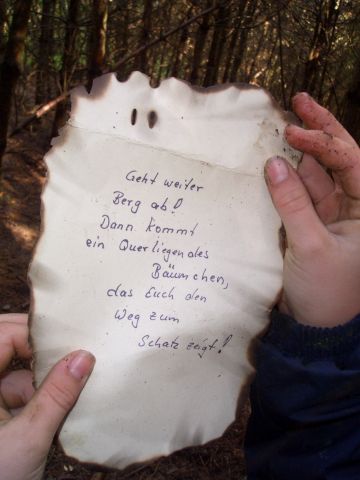 Geht weiter
Berg ab!
Dann kommt
ein Querliegendes
Bäumchen,
das Euch den
Weg zum
Schatz zeigt!